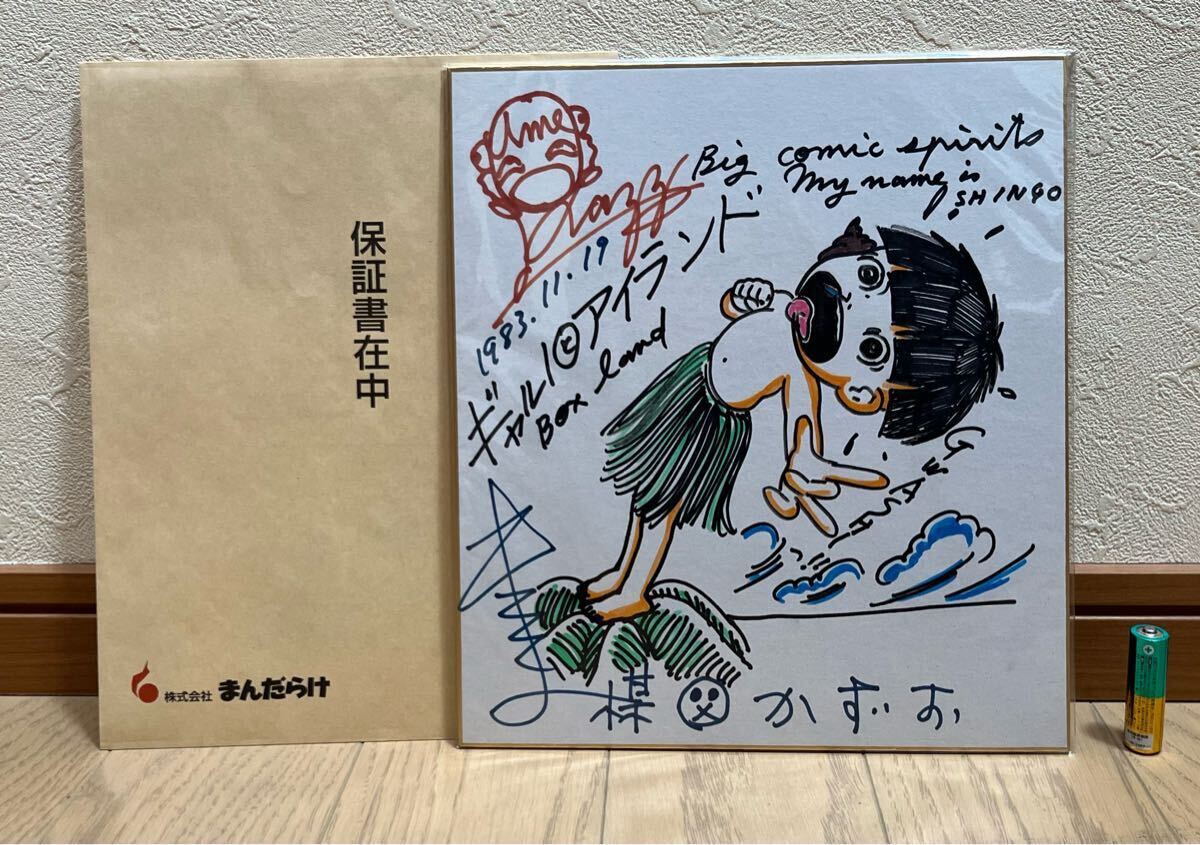 保証書在中
株式会社 まんだらけ
Ame
Big comic spirits
My name is
SHINGO
1983.11.19
ギャル の アイランド
Box land
GWASHI
楳 かずお